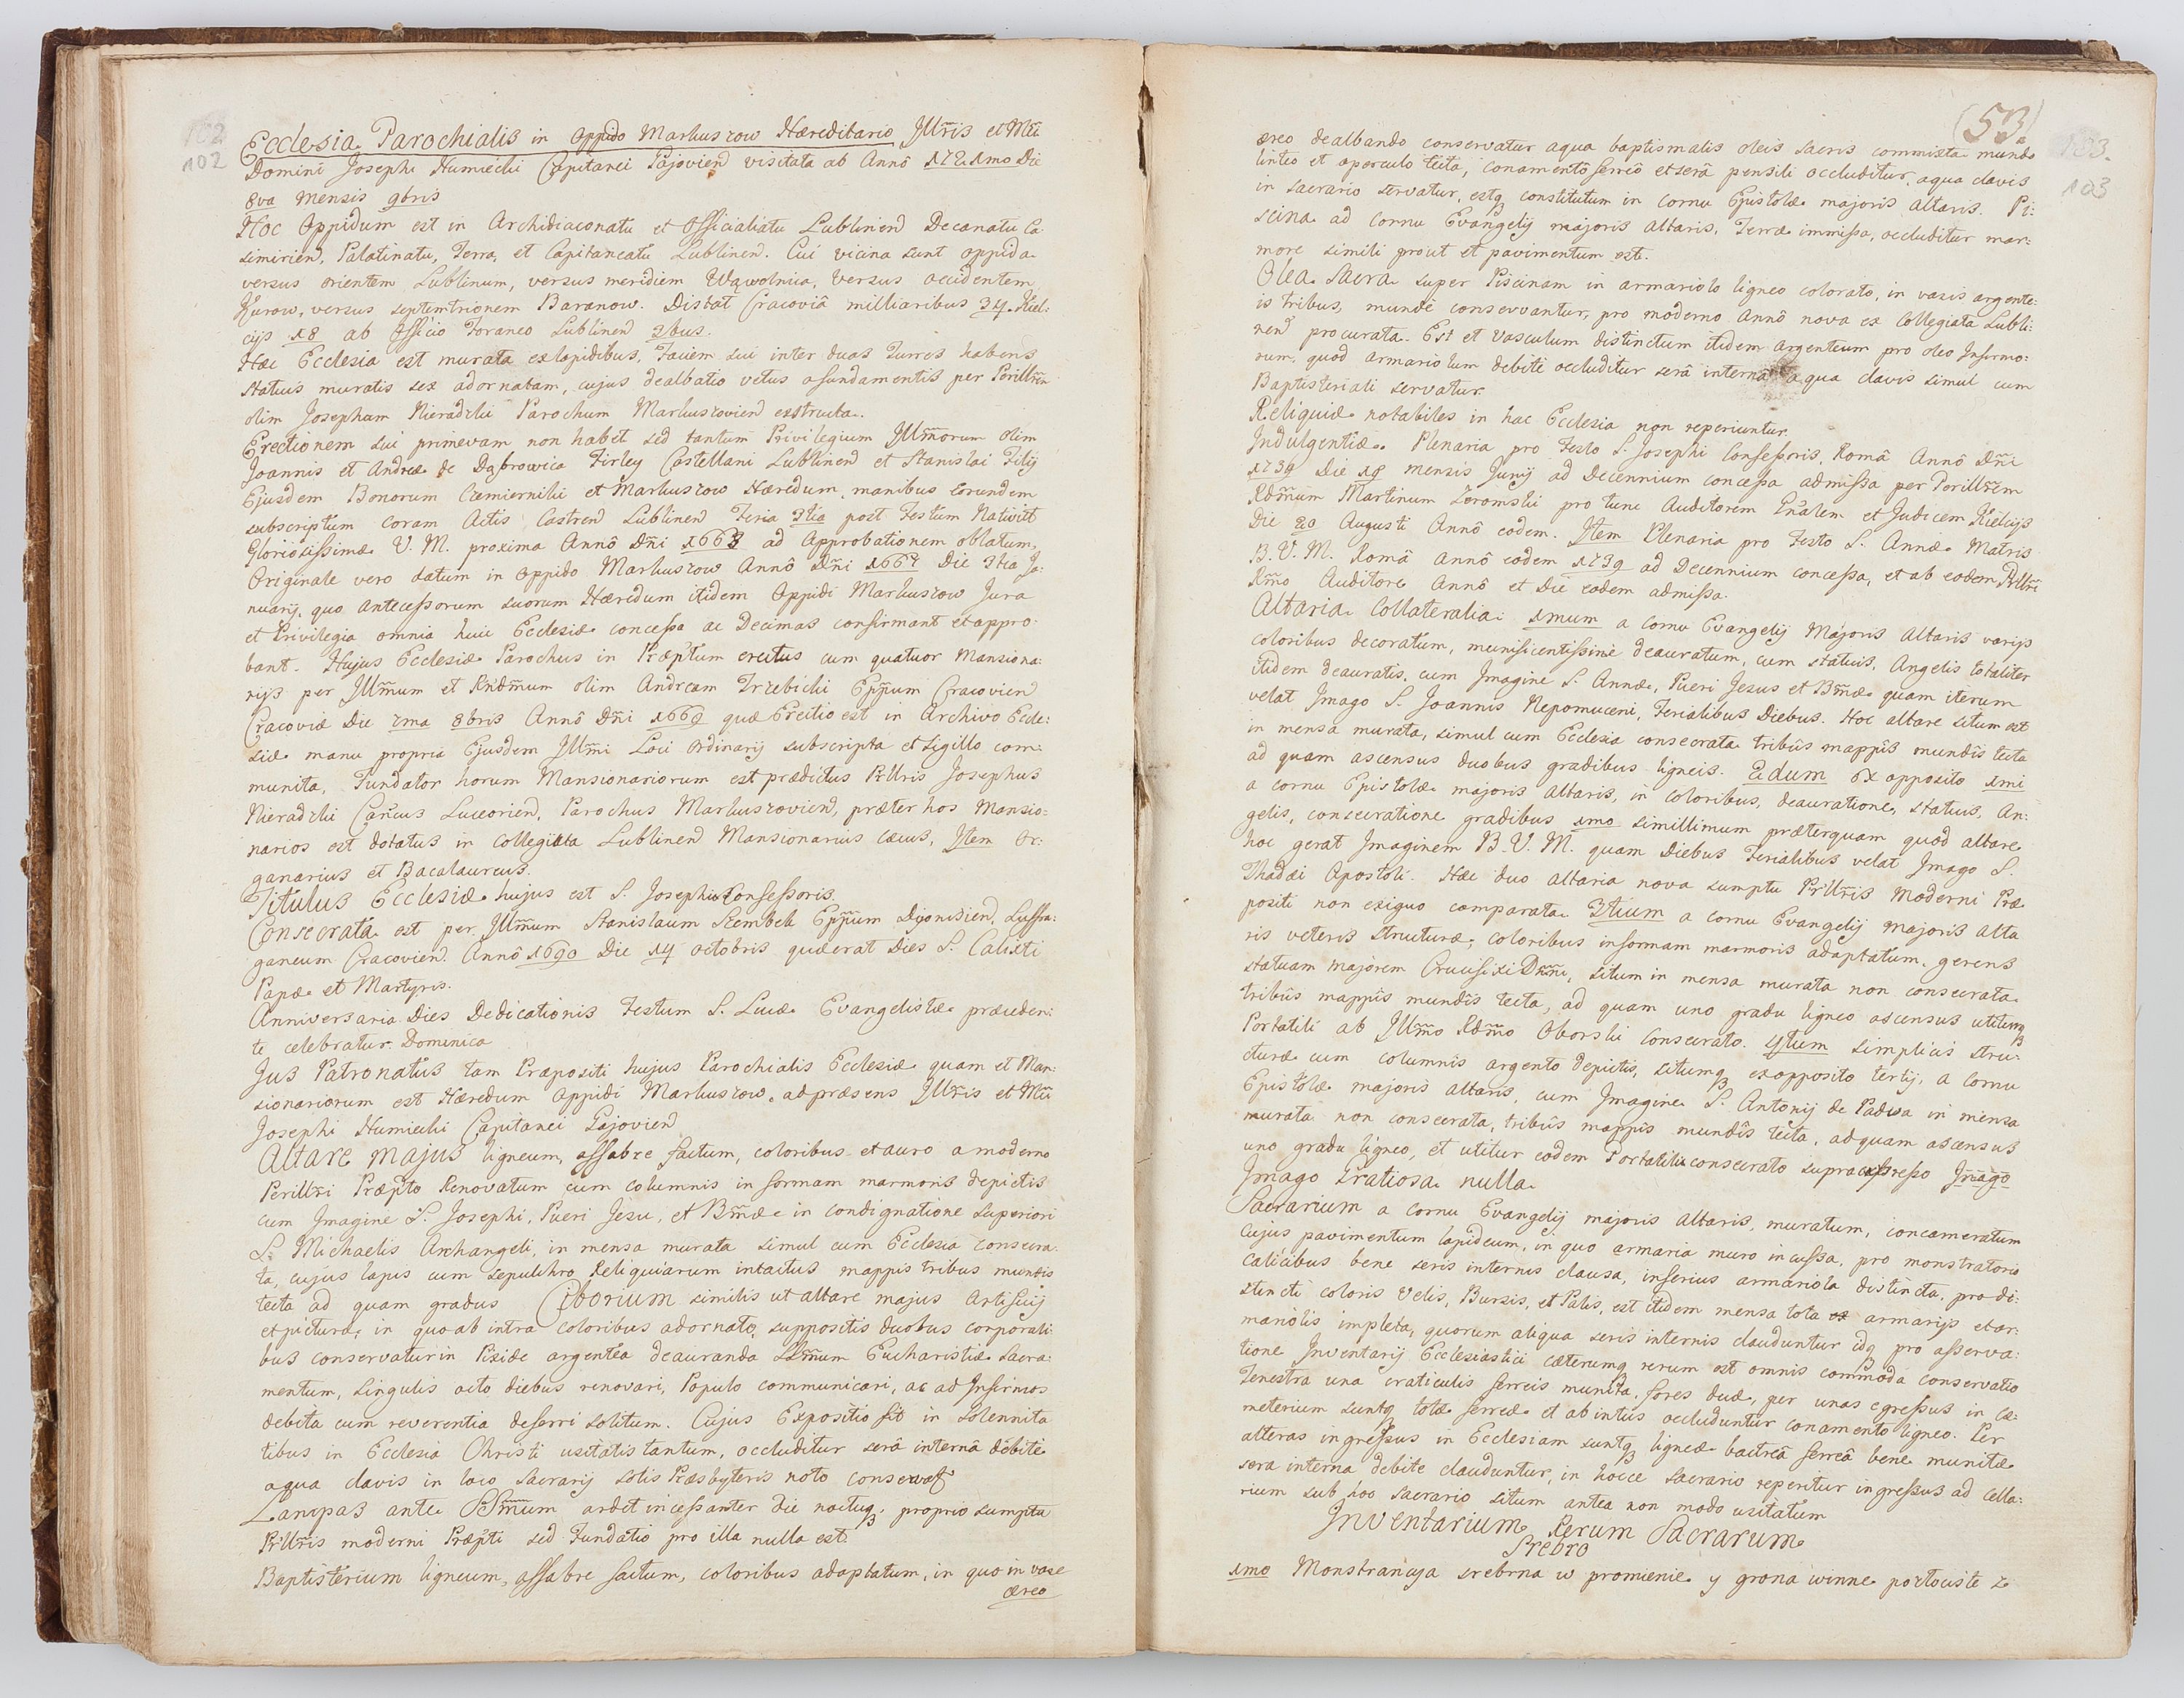 102
102
Ecclesia Parochialis in Oppido Markuszow Hæreditario Jllr̃is et Mm̃
Domini Josephi Humiecki Capitanei Rajoviend visitata ab Annô 1721mo Die
8va mensis 9bris
Hoc Oppidum est in Archidiaconatu et Officialiatu Lublinend Decanatu Ca
simirień, Palatinatu, Terra, et Capitaneatu Lublinen. Cui vicina sunt oppida
versus orientem Lublinum, versus meridiem Wąwolnica, versus occidentem
Kurow, versus septemtrionem Baranow. Distat Cracoviâ milliaribus 34. Kiel:
cijs 18 ab Officio Foraneo Lublinend 3bus.
Hæc Ecclesia est murata ex lapidibus, Faciem sui inter duas Turres habens
statuis muratis sex adornatam, cujus dealbatio vetus a fundamentis per Perillr̃em
olim Josephum Nieradzki Parochum Markuszoviend exstructa.
Erectionem sui primevam non habet sed tantum Privilegium Jllm̃orum olim
Joannis et Andreæ de Dąbrowica Firley Castellani Lublinend et Stanislai Filij
Ejusdem Bonorum Czemierniki et Markuszow Hæredum, manibus Eorundem
subscriptum coram Actis Castrend Lublinend Feria 3tia post Festum Nativitt
Gloriosissimæ V. M. proxima Annô Dñi 1663 ad Approbationem oblatum.
Originale vero datum in Oppido Markuszow Annô Dñi 1667 Die 3tia Ja:
nuarij, quo Antecessorum suorum Hæredum itidem Oppidi Markuszow Jura
et Privilegia omnia huic Ecclesiæ concessa ac Decimas confirmant et appro:
bant. Hujus Ecclesiæ Parochus in Præptum erectus cum quatuor Mansiona:
rijs per Jllm̃um et Rndm̃um olim Andream Trzebicki Epp̃um Cracoviend
Cracoviæ Die 7ma 8bris Annô Dñi 1669 quæ Erectio est in Archivo Eccle:
siæ manu propria Ejusdem Jllm̃i Loci Ordinarij subscripta et sigillo com:
munita, Fundator horum Mansionariorum est prædictus Prllris Josephus
Nieradzki Cañcus Luceorień, Parochus Markuszoviend, præter hos Mansio:
narios est dotatus in Collegiata Lublinend Mansionarius cæcus, Jtem Or:
ganarius et Bacalaureus.
Titulus Ecclesiæ hujus est S. Josephi Confessoris.
Consecrata est per Jllm̃um Stanislaum Szembek Epp̃um Dijonisień, Suffra:
ganeum Cracovień. Annô 1690 Die 14 octobris quæ erat Dies S. Calixti
Papæ et Martyris.
Anniversaria Dies Dedicationis Festum S. Lucæ Evangelistæ præceden:
te celebratur Dominica
Jus Patronatus tam Præpositi hujus Parochialis Ecclesiæ quam et Man:
sionariorum est Hæredum Oppidi Markuszow, ad præsens Jllr̃is et Mm̃
Josephi Humiecki Capitanei Rajoviend
Altare majus ligneum, affabre factum, coloribus et auro a moderno
Perillr̃i Præpto Renovatum cum columnis in formam marmoris depictis
cum Jmagine S. Josephi, Pueri Jesu, et Bm̃æ in condignatione superiori
S. Michaelis Archangeli, in mensa murata simul cum Ecclesia consecra:
ta, cujus lapis cum sepulchro Reliquiarum intactus mappis tribus mundis
tecta ad quam gradus Ciborium similis ut altare majus Artificij
et picturæ, in quo ab intra coloribus adornato, suppositis duobus corporali:
bus conservatur in Pixide argentea deauranda SSm̃um Eucharistiæ Sacra:
mentum, singulis octo diebus renovari, Populo communicari, ac ad Jnfirmos
debita cum reverentia deferri solitum. Cujus Expositio fit in solennita
tibus in Ecclesia Christi usitatis tantum, occluditur serâ internâ debite
aqua clavis in loco Sacrarij solis Præsbyteris noto conservat
Lampas ante SSm̃um ardet incessanter die noctuq; proprio sumptu
Prllr̃is moderni Præpti sed Fundatio pro illa nulla est.
Baptisterium ligneum, affabre factum, coloribus adaptatum, in quo in vase
æreo
(53)
103.
103
æreo dealbando conservatur aqua baptismatis oleis sacris commixta mundo
linteo et operculo tecta, conamentô ferreô et serâ pensili occluditur, aqua clavis
in sacrario servatur, estq; constitutum in cornu Epistolæ majoris altaris. Pi:
scina ad cornu Evangelij majoris altaris, Terræ immissa, occluditur mar:
more simili prout et pavimentum est.
Olea Sacra super Piscinam in armariolo ligneo colorato, in vasis argente:
is tribus, munde conservantur, pro moderno annô nova ex Collegiata Lubli:
nend procurata. Est et vasculum distinctum itidem argenteum pro oleo Jnfirmo:
rum, quod armariolum debite occluditur serâ internâ aqua clavis simul cum
Baptisteriali servatur.
Reliquiæ notabiles in hac Ecclesia non reperiuntur.
Jndulgentiæ. Plenaria pro Festo S. Josephi Confessoris, Româ Annô Dñi
1739 Die 18 mensis Junij ad Decennium concessa admissa per Perillr̃em
Rdm̃um Martinum Zeromski pro tunc Auditorem Gñalem et Judicem Kielcijs
Die 20 Augusti Annô eodem. Jtem Plenaria pro Festo S. Annæ Matris
B. V. M. Româ annô eodem 1739 ad Decennium concessa, et ab eodem Prllr̃i
Rm̃o Auditore Annô et Die eodem admissa.
Altaria Collateralia: 1mum a cornu Evangelij Majoris Altaris varijs
coloribus decoratum, munificentissime deauratum, cum statuis, Angelis totaliter
itidem deauratis, cum Jmagine S. Annæ, Pueri Jesus et Bm̃æ quam iterum
velat Jmago S. Joannis Nepomuceni, Ferialibus Diebus. Hoc altare situm est
in mensa murata, simul cum Ecclesia consecrata tribûs mappîs mundîs tecta
ad quam ascensus duobus gradibus ligneis. 2dum ex opposito 1mi
a cornu Epistolæ majoris altaris, in coloribus, deauratione, statuis, An:
gelis, consecratione gradibus 1mo simillimum præterquam quod altare
hoc gerat Jmaginem B. V. M. quam Diebus Ferialibus velat Jmago S.
Thadæi Apostoli. Hæc duo altaria nova sumptu Prllr̃is Moderni Præ
positi non exiguo comparata. 3tium a cornu Evangelij majoris alta
ris veteris structuræ, coloribus in formam marmoris adaptatum, gerens
statuam majorem Crucifixi Dñi, situm in mensa murata non consecrata
tribûs mappîs mundîs tecta, ad quam uno gradu ligneo ascensus utiturq;
Portatili ab Jllm̃o Rdm̃o Oborski consecrato. 4tum simplicis stru:
cturæ cum columnis argento depictis, situmq; ex opposito tertij, a cornu
Epistolæ majoris altaris, cum Jmagine S. Antonij de Padua in mensa
murata non consecrata, tribûs mappîs mundîs tecta, ad quam ascensus
uno gradu ligneo, et utitur eodem Portatili consecrato supra expresso Jmago
Jmago Gratiosa nulla.
Sacrarium a cornu Evangelij majoris altaris, muratum, concameratum
cujus pavimentum lapideum, in quo armaria muro incussa, pro monstratorio
Calicibus bene seris internis clausa, inferius armariola distincta, pro di:
stincti coloris Velis, Bursis, et Palis, est itidem mensa tota ex armarijs et ar:
mariolis impleta, quorum aliqua seris internis clauduntur idq; pro asserva:
tione Jnventarij Ecclesiastici cæterumq; rerum est omnis commoda conservatio
Fenestra una craticulis ferreis munita, fores duæ, per unas egressus in Cæ:
meterium suntq; totæ ferreæ et ab intus occluduntur conamento ligneo. Per
alteras ingressus in Ecclesiam suntq; ligneæ bactreâ ferreâ bene munitæ
sera interna debite clauduntur, in hocce sacrario reperitur ingressus ad Cella:
rium sub hoc sacrario situm antea non modo usitatum
Jnventarium Rerum Sacrarum
Srebro
1mo Monstrancya srebrna w promienie y grona winne pozłociste z